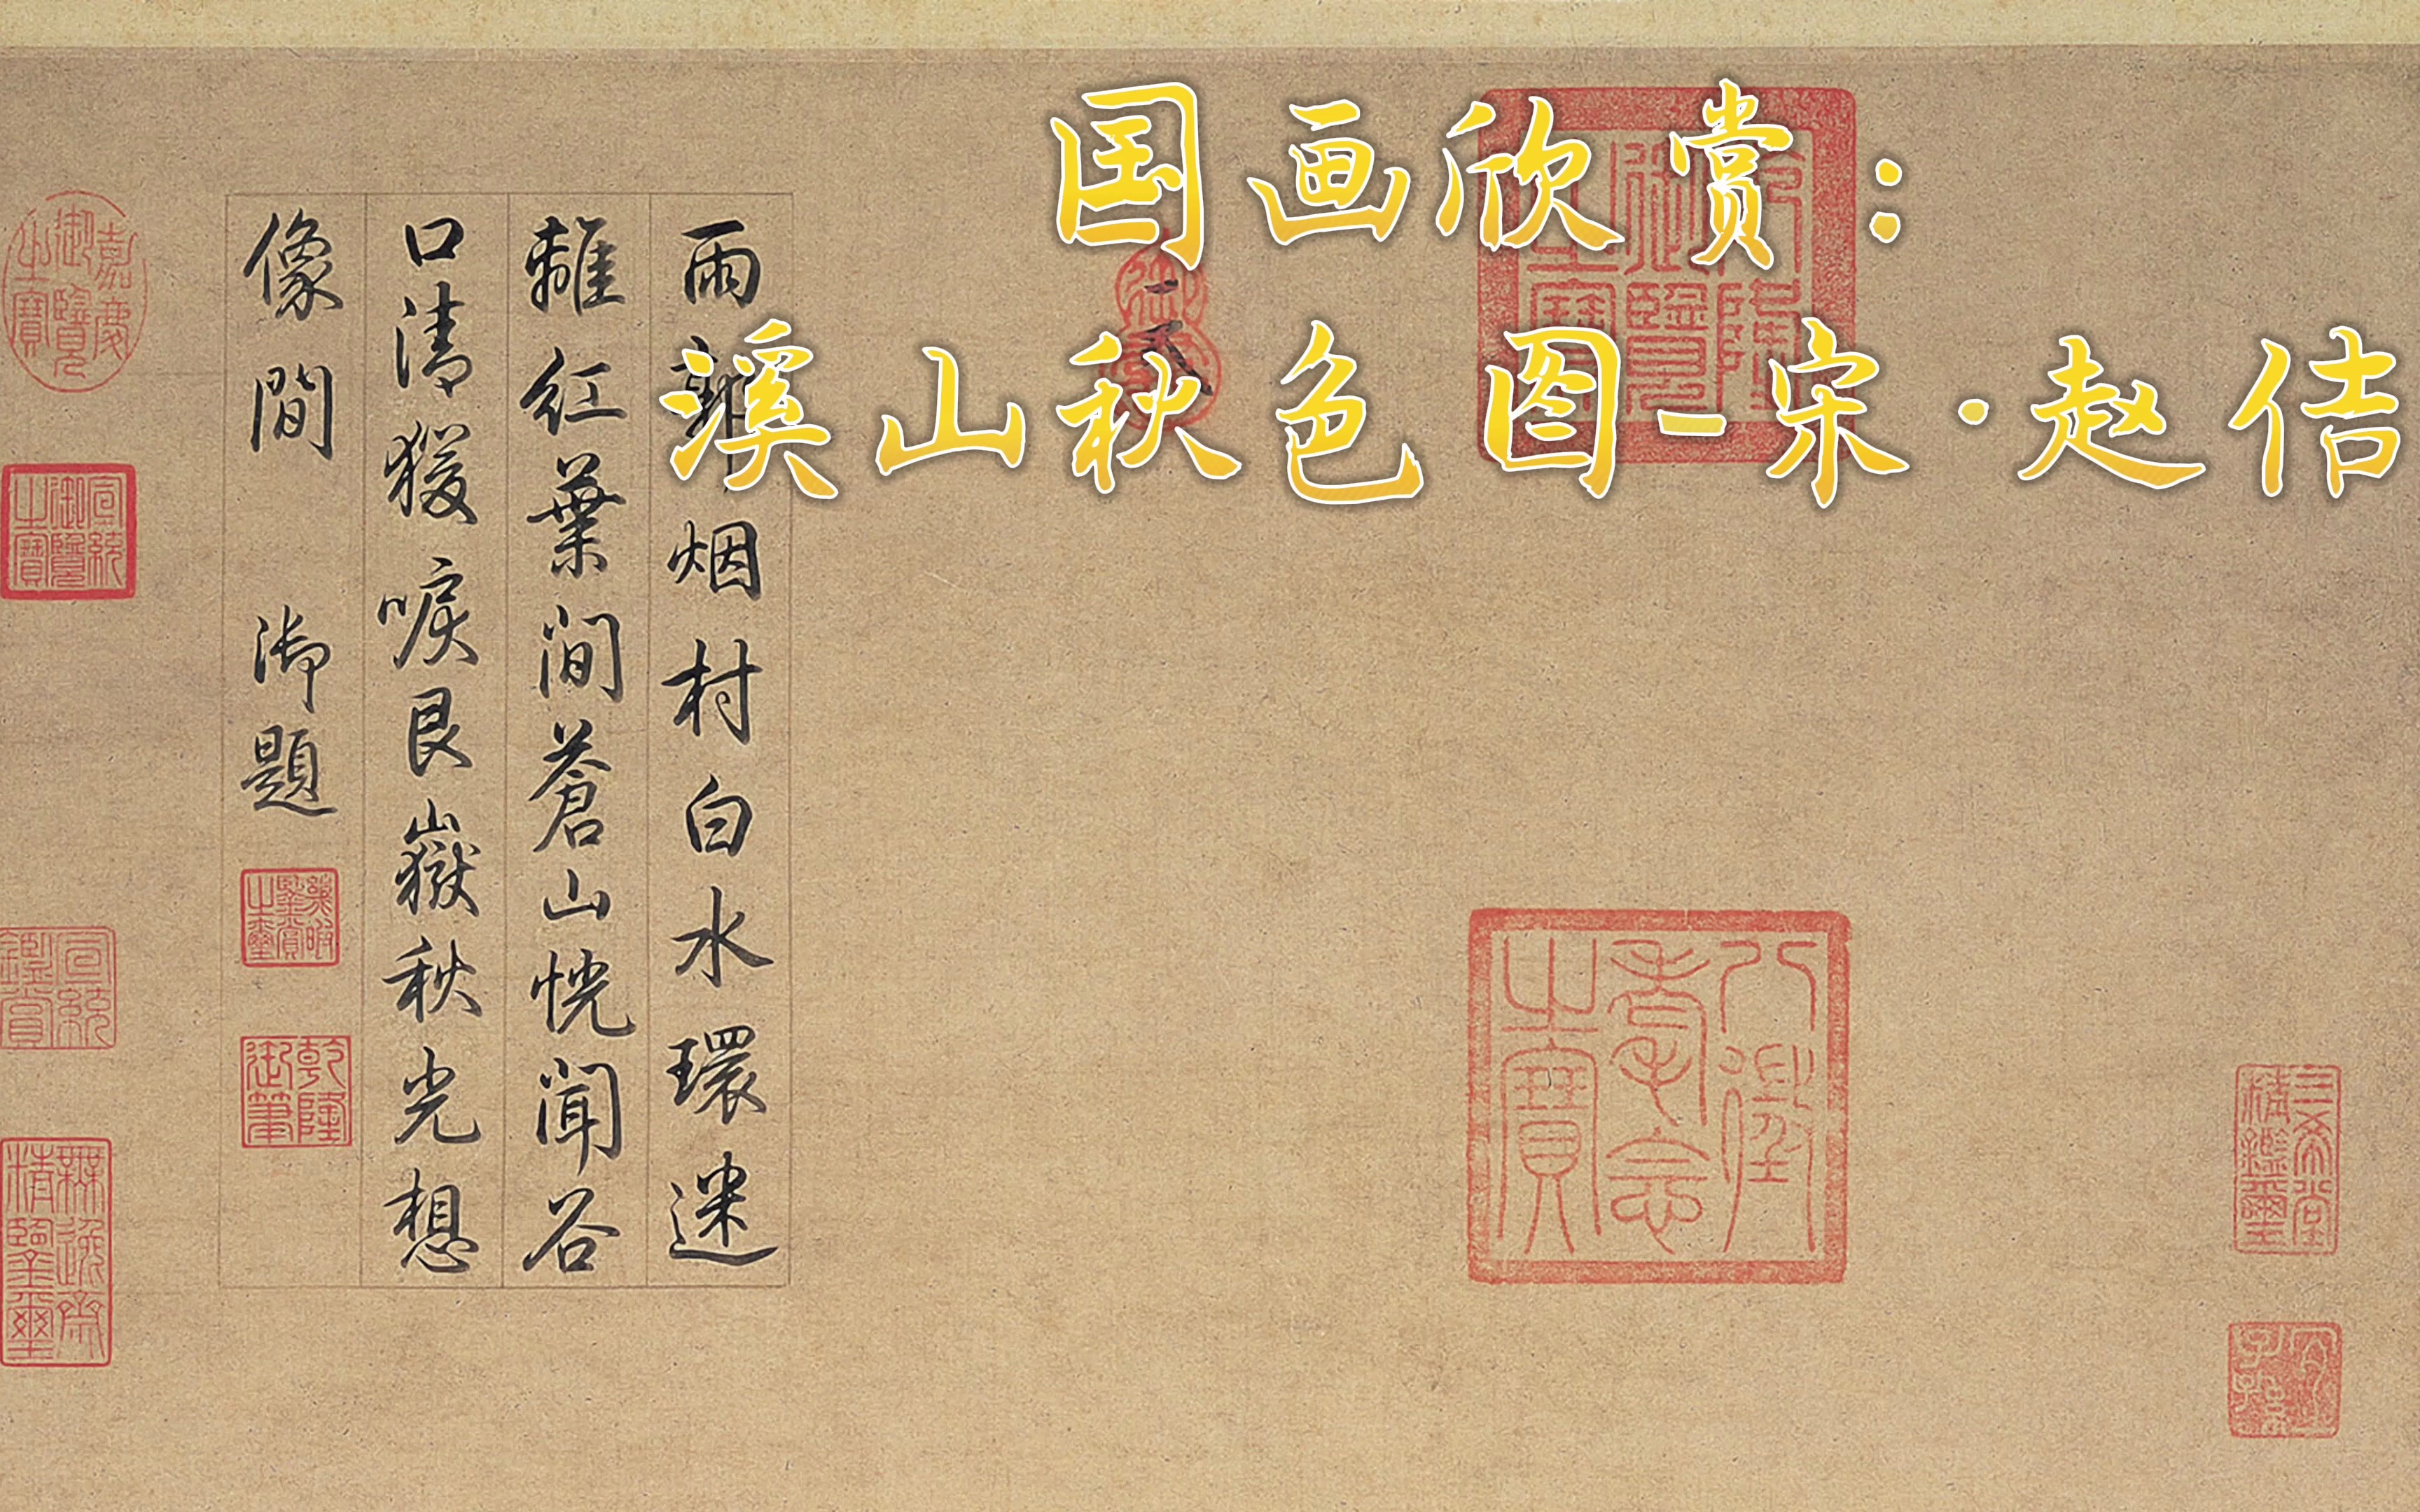 国画欣赏：
溪山秋色图-宋·赵佶
雨郭烟村白水環迷
離紅葉澗蒼山恍聞谷
口清猨唳艮嶽秋光想
像間 御題
幾暇鑒賞之璽
乾隆御筆
乾隆御覽之寶
八徵耄念之寶
三希堂精鑑璽
宜子孫
嘉慶御覽之寶
宣統御覽之寶
宣統鑑賞
無逸齋精鑒璽